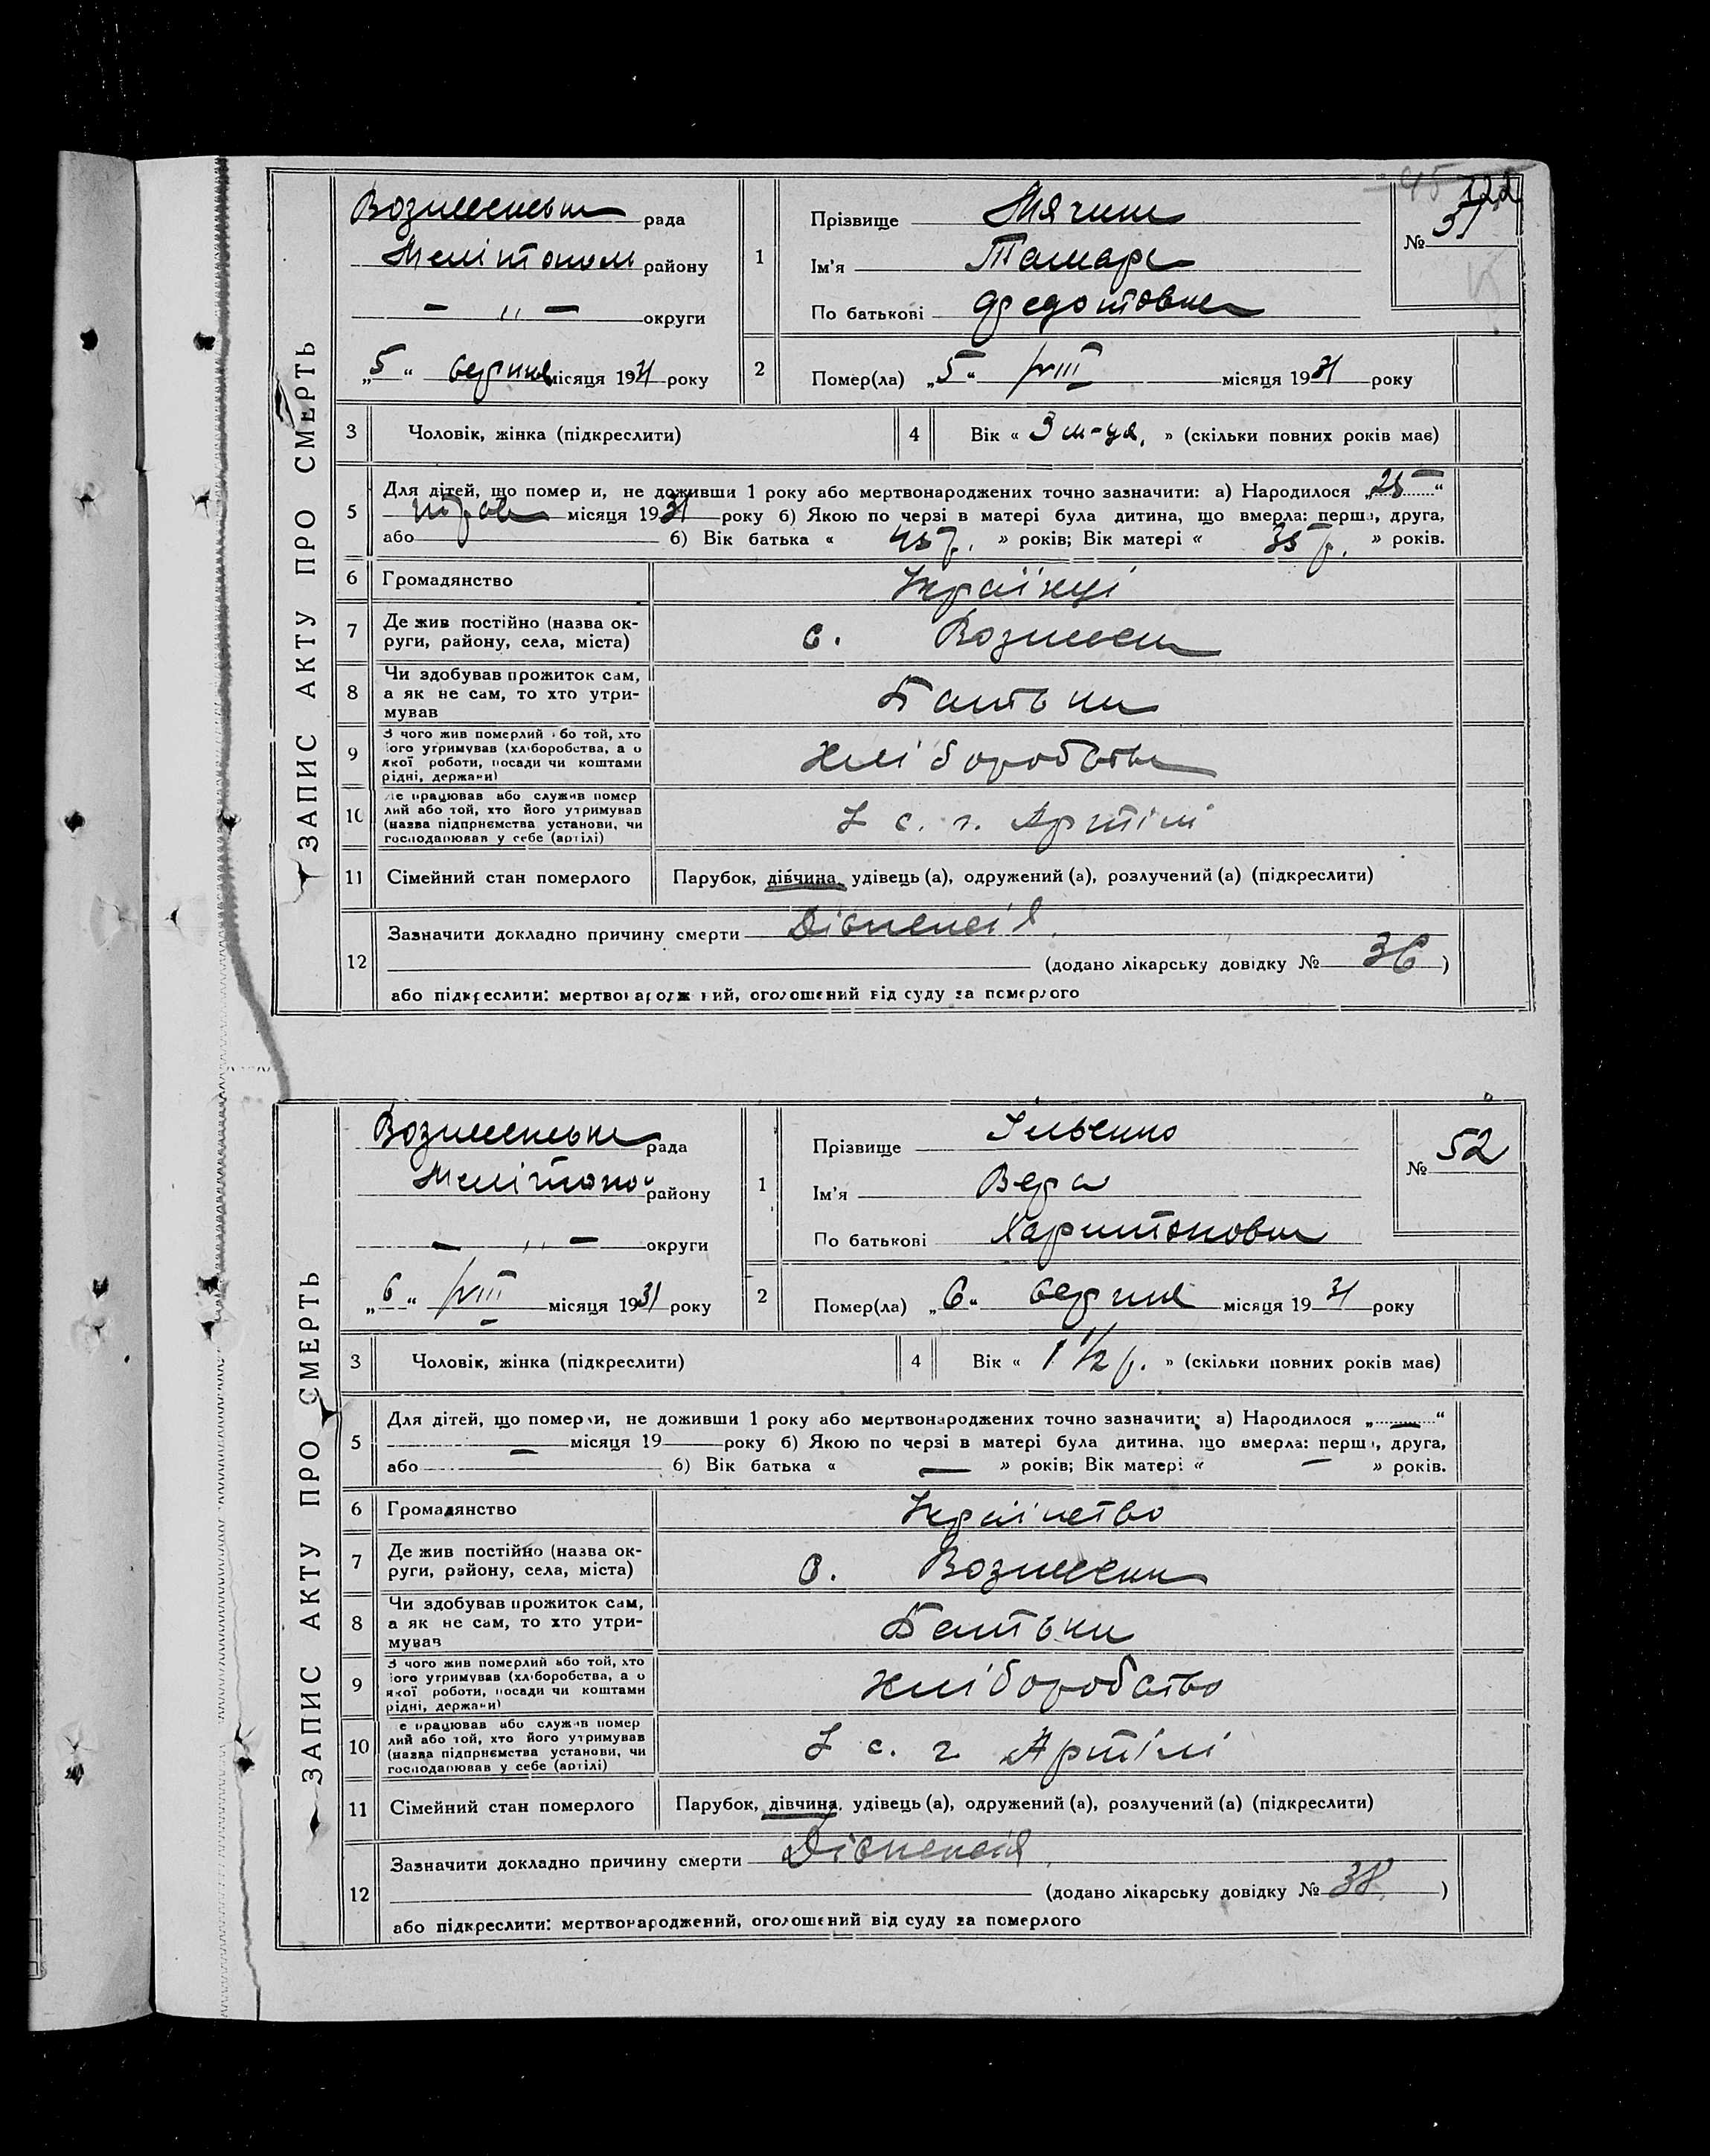 ЗАПИС АКТУ ПРО СМЕРТЬ
45 122
Вознесенська рада
Мелітопол району
— „ — округи
„5“ серпня місяця 1931 року
1
Прізвище
Ім'я Тамара
По батькові Федотовна
№ 51
2 Помер(ла) „5“ VIII місяця 1931 року
3 Чоловік, жінка (підкреслити)
4 Вік « 3 м-ця. » (скільки повних років має)
5 Для дітей, що помер и, не доживши 1 року або мертвонароджених точно зазначити: а) Народилося „25“
травня місяця 1931 року б) Якою по черзі в матері була дитина, що вмерла: перша, друга,
або б) Вік батька « 45 р. » років; Вік матері « 35 р. » років.
6 Громадянство Українці
7 Де жив постійно (назва ок-
руги, району, села, міста) с. Вознесен
8 Чи здобував прожиток сам,
а як не сам, то хто утри-
мував Батьки
9 З чого жив померлий або той, хто
його утримував (хліборобства, а о
якої роботи, посади чи коштами
рідні, держави) Хліборобства
10 Де працював або служив помер
лий або той, хто його утримував
(назва підприємства установи, чи
господарював у себе (артілі) В с. г. Артілі
11 Сімейний стан померлого Парубок, дівчина, удівець (а), одружений (а), розлучений (а) (підкреслити)
12 Зазначити докладно причину смерти Діспепсія.
(додано лікарську довідку № 36 )
або підкреслити: мертвонароджений, оголошений від суду за померлого
ЗАПИС АКТУ ПРО СМЕРТЬ
Вознесенська рада
Мелітопол району
— „ — округи
„6“ VIII місяця 1931 року
1
Прізвище Ільєнко
Ім'я Вера
По батькові Харитоновна
№ 52
2 Помер(ла) „6“ серпня місяця 1931 року
3 Чоловік, жінка (підкреслити)
4 Вік « 1 1/2 р. » (скільки повних років має)
5 Для дітей, що померли, не доживши 1 року або мертвонароджених точно зазначити: а) Народилося „—“
— місяця 19 року б) Якою по черзі в матері була дитина, що вмерла: перша, друга,
або б) Вік батька « — » років; Вік матері « — » років.
6 Громадянство Українство
7 Де жив постійно (назва ок-
руги, району, села, міста) с. Вознесенка
8 Чи здобував прожиток сам,
а як не сам, то хто утри-
мував Батьки
9 З чого жив померлий або той, хто
його утримував (хліборобства, а о
якої роботи, посади чи коштами
рідні, держави) Хліборобство
10 е працював або служив помер
лий або той, хто його утримував
(назва підприємства установи, чи
господарював у себе (артілі) В с. г Артілі
11 Сімейний стан померлого Парубок, дівчина, удівець (а), одружений (а), розлучений (а) (підкреслити)
12 Зазначити докладно причину смерти Діспепсія.
(додано лікарську довідку № 38. )
або підкреслити: мертвонароджений, оголошений від суду за померлого